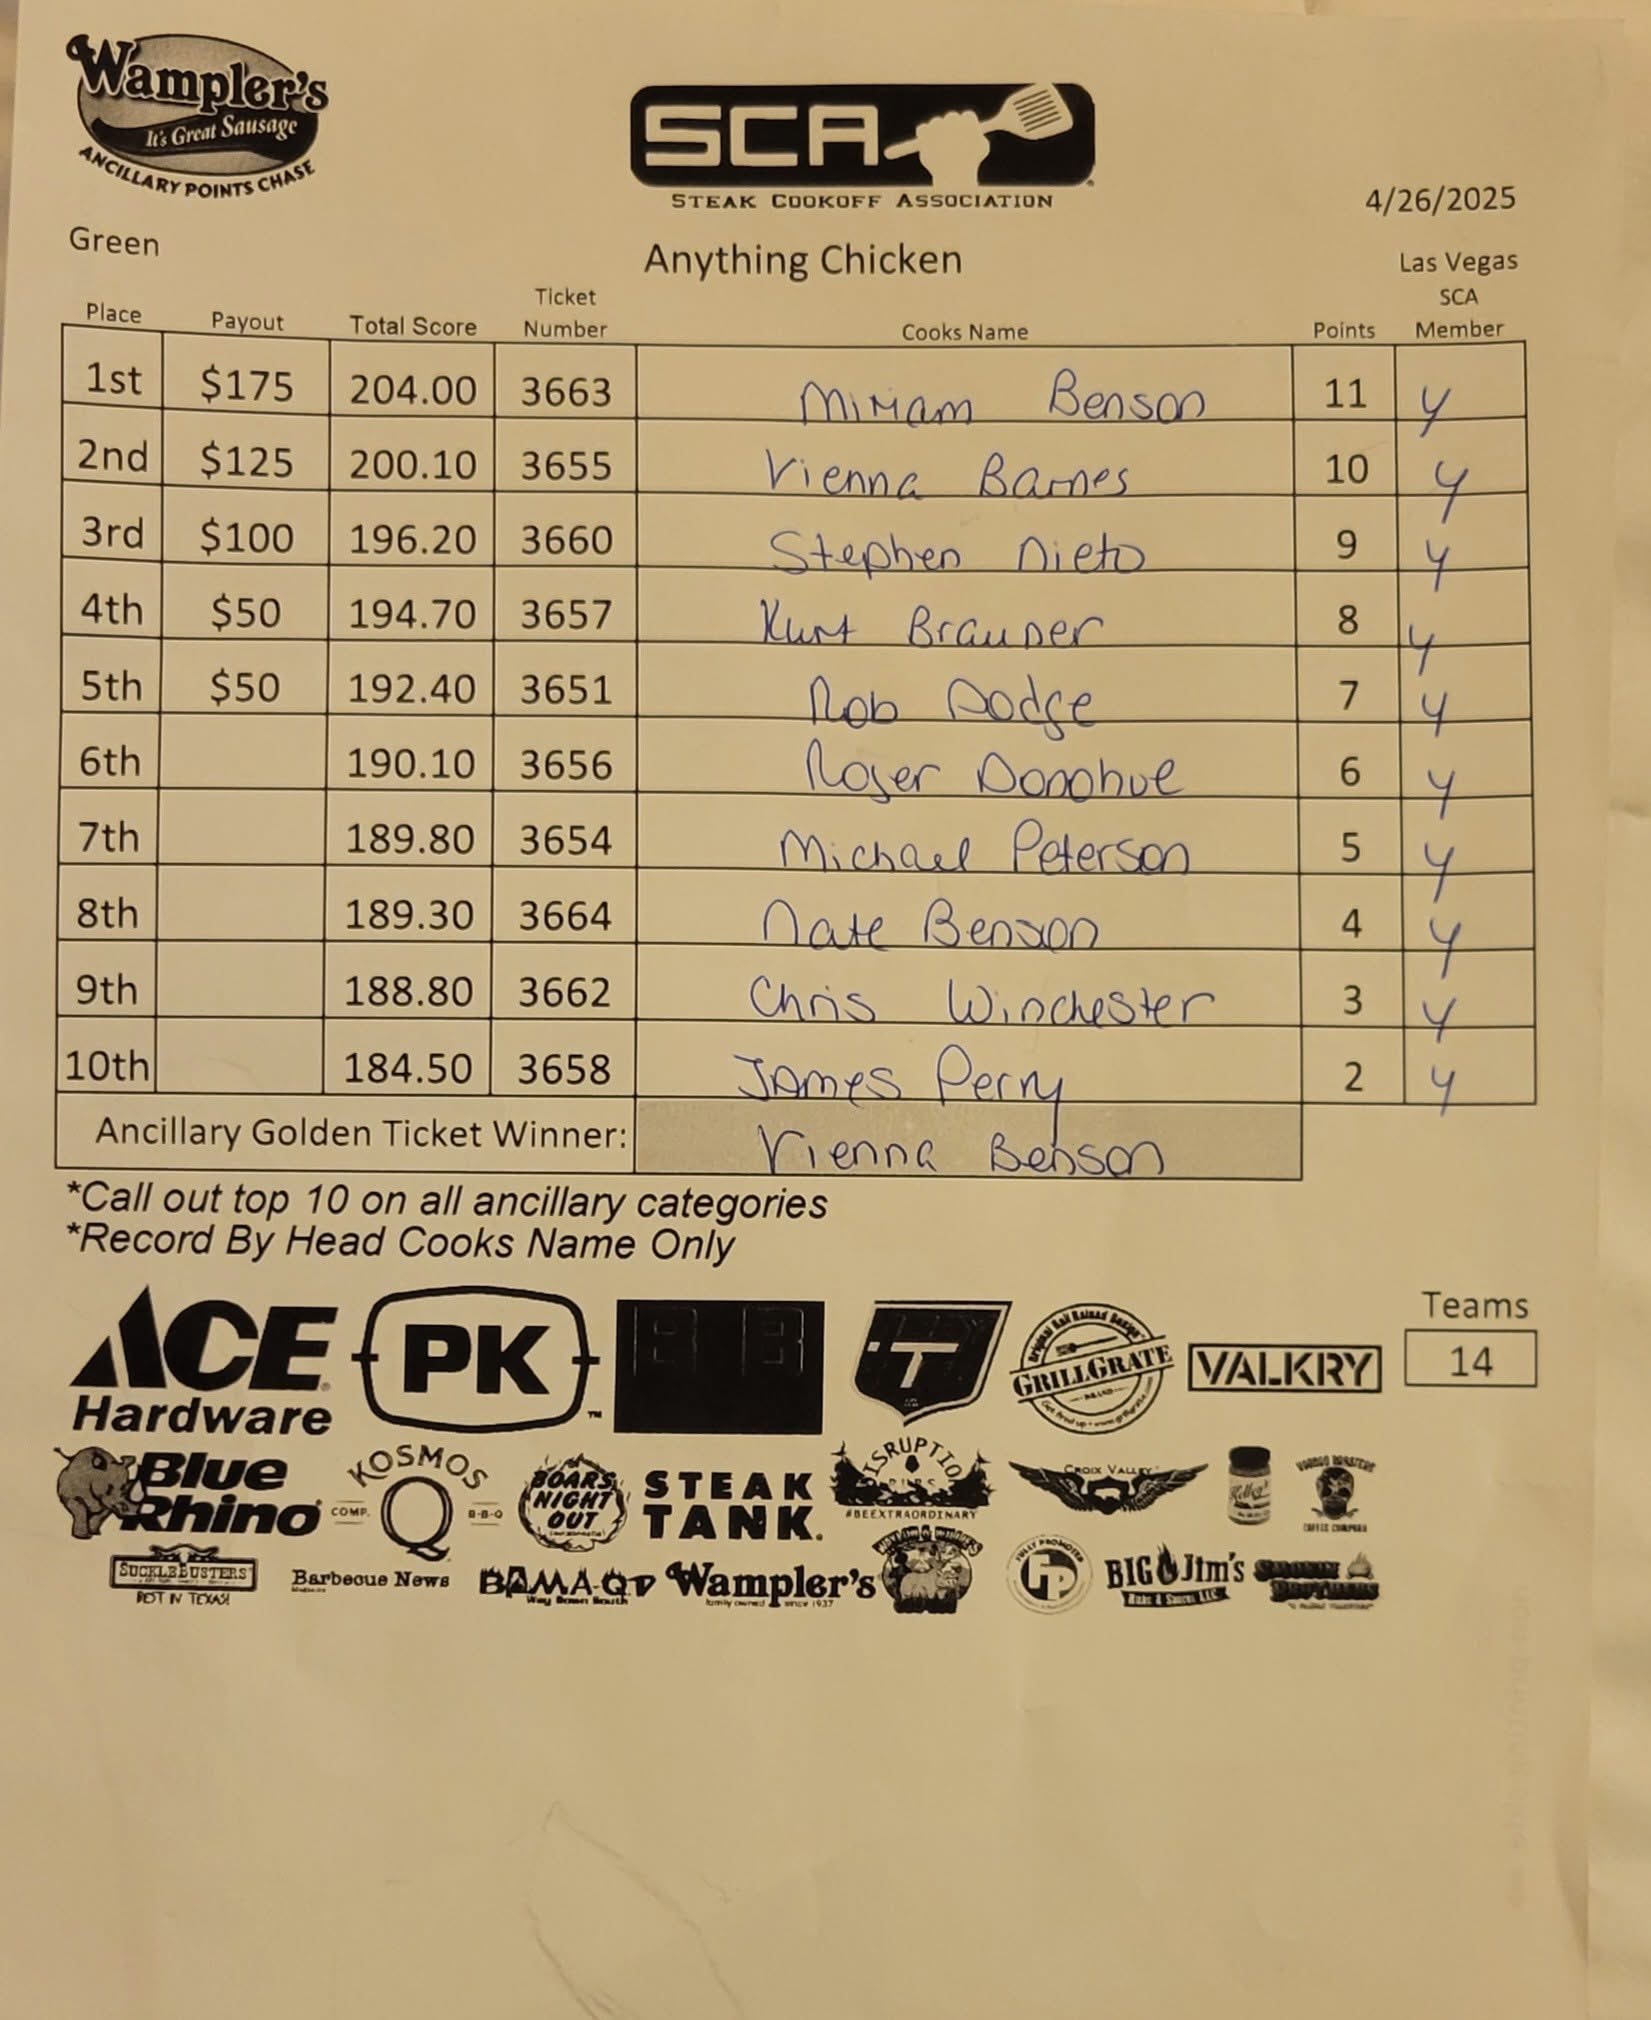 Wampler's
It's Great Sausage
ANCILLARY POINTS CHASE
SCA
STEAK COOKOFF ASSOCIATION
4/26/2025
Green
Anything Chicken
Las Vegas
Place Payout Total Score Ticket Number Cooks Name Points SCA Member
1st $175 204.00 3663 Miriam Benson 11 y
2nd $125 200.10 3655 Vienna Barnes 10 y
3rd $100 196.20 3660 Stephen Nieto 9 y
4th $50 194.70 3657 Kurt Brauner 8 y
5th $50 192.40 3651 Rob Dodge 7 y
6th 190.10 3656 Roger Donohue 6 y
7th 189.80 3654 Michael Peterson 5 y
8th 189.30 3664 Nate Benson 4 y
9th 188.80 3662 Chris Winchester 3 y
10th 184.50 3658 James Perry 2 y
Ancillary Golden Ticket Winner: Vienna Benson
*Call out top 10 on all ancillary categories
*Record By Head Cooks Name Only
Teams
14
ACE Hardware
PK
T
Original Rail Raised Design
GRILLGRATE
VALKRY
Blue Rhino
KOSMOS Q
COMP. B-B-Q
BOARS NIGHT OUT
STEAK TANK.
DISRUPTION
#BEEXTRAORDINARY
CROIX VALLEY
SUCKLEBUSTERS
BEST IN TEXAS!
Barbecue News
BAMA-Q TV
Way Down South
Wampler's
family owned since 1937
FULLY PROMOTED
FP
BIG Jim's
RUBS & SAUCES LLC